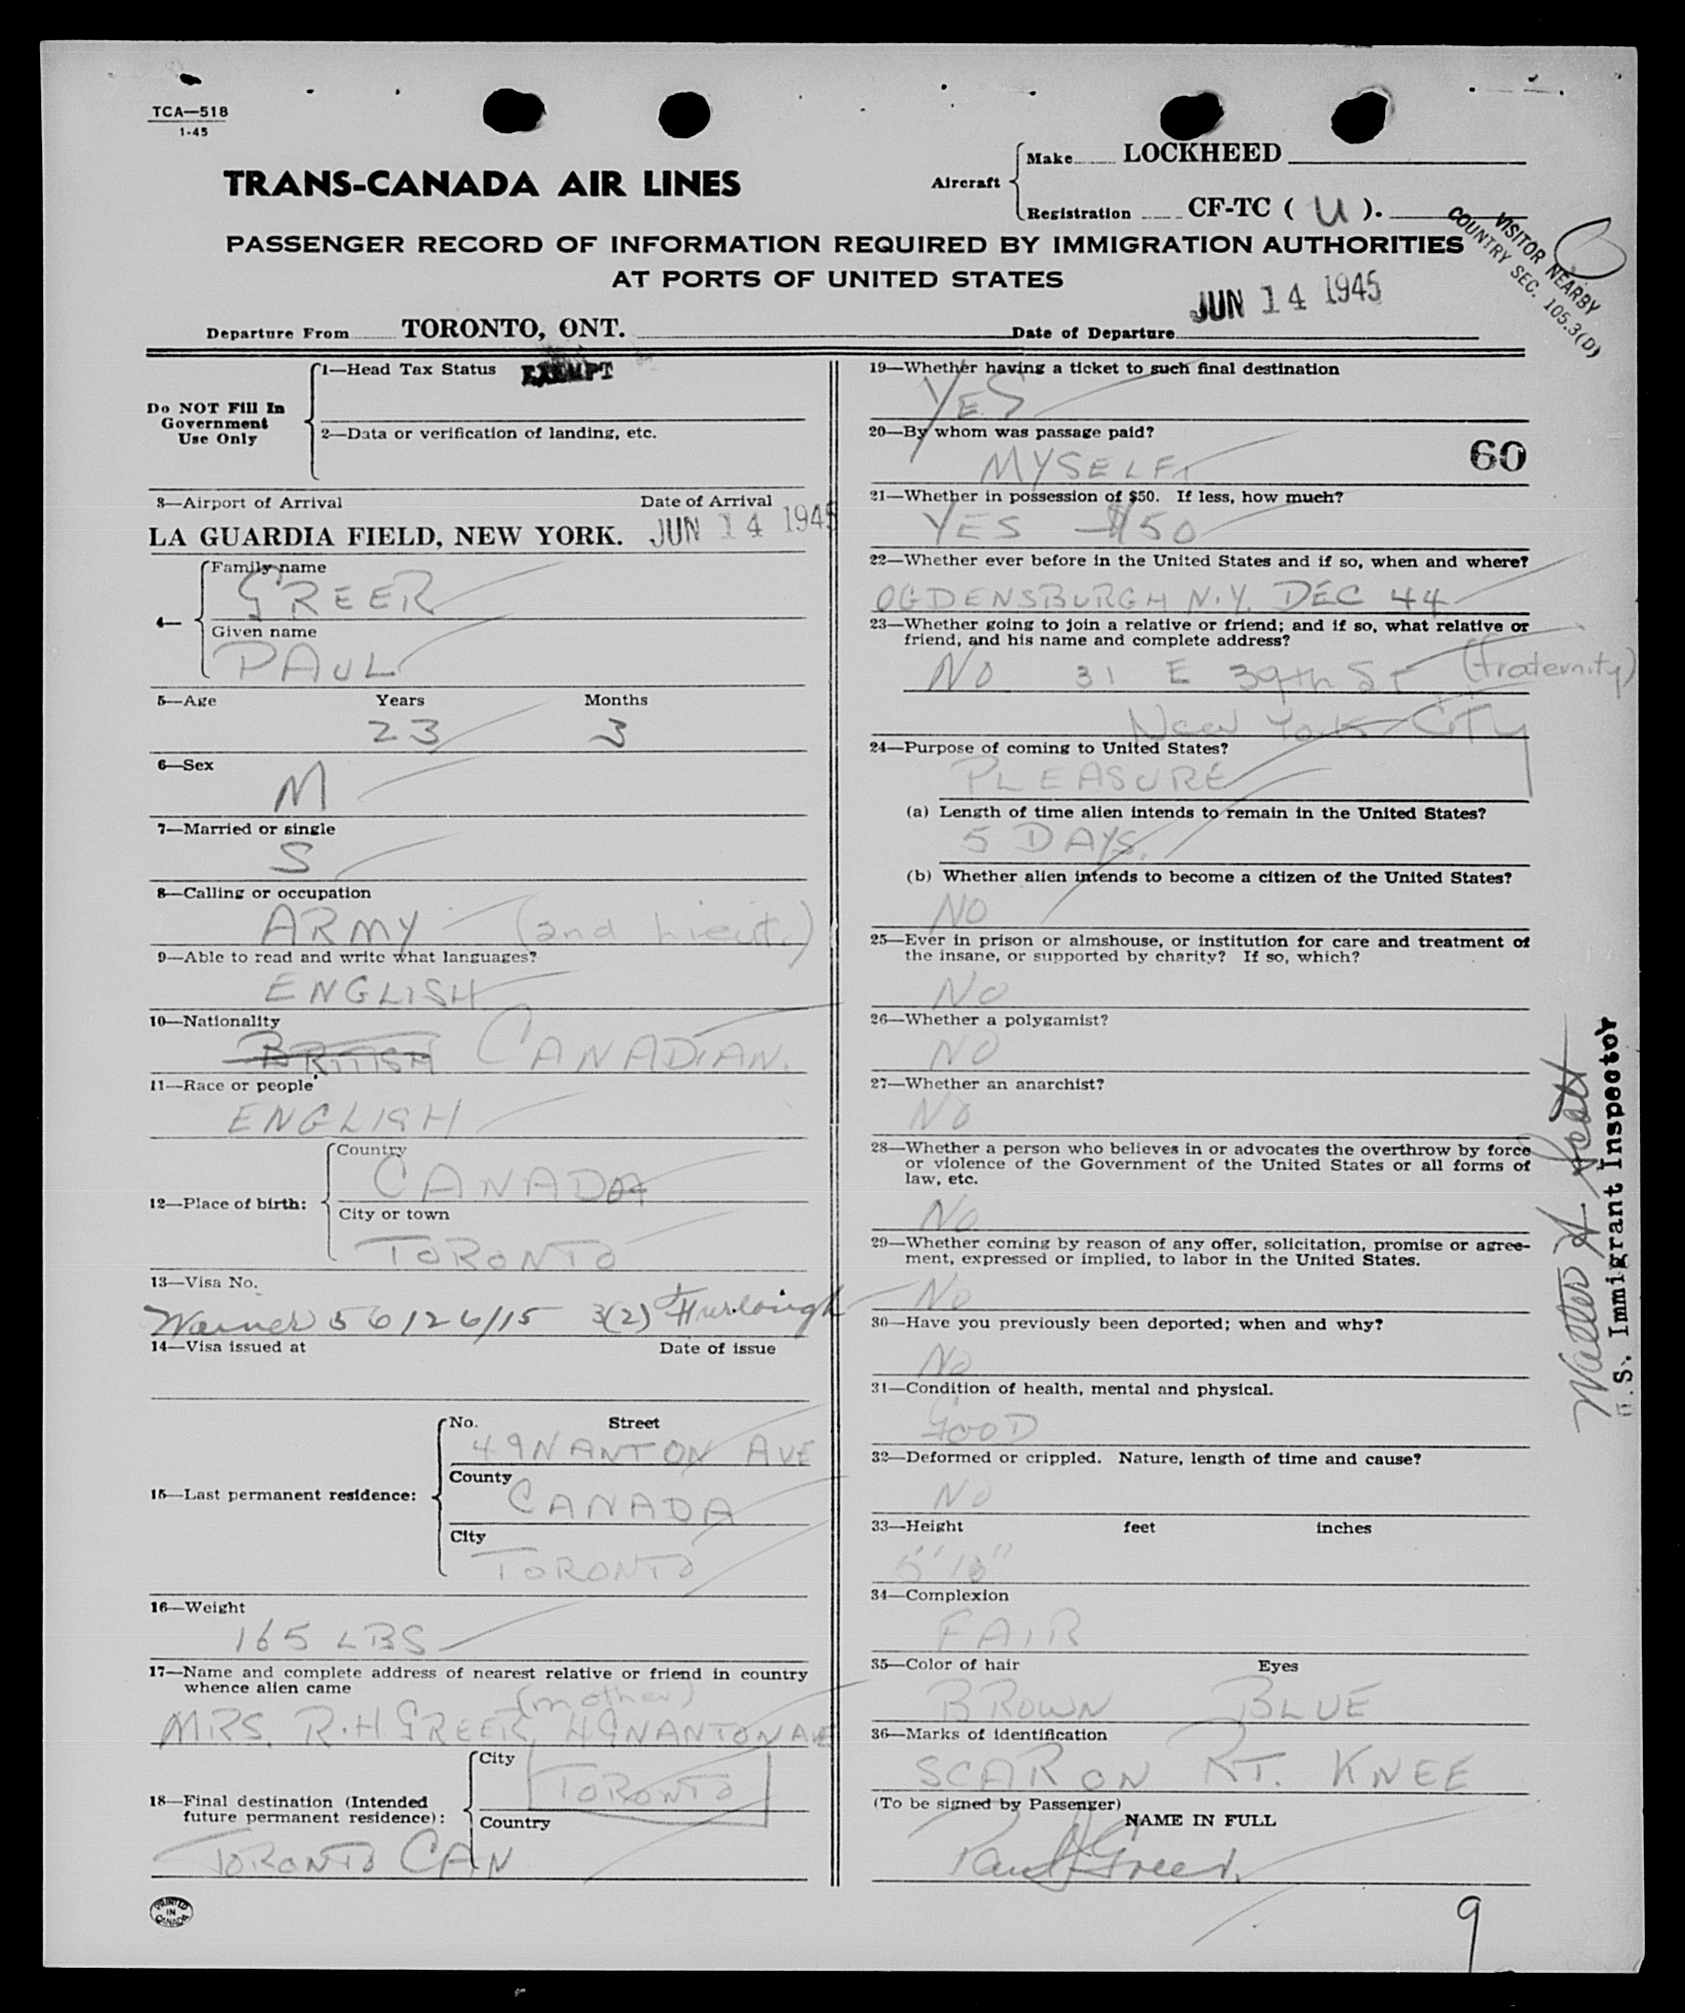 TCA—518
1-45
TRANS-CANADA AIR LINES
Aircraft
Make LOCKHEED
Registration CF-TC ( U ).
PASSENGER RECORD OF INFORMATION REQUIRED BY IMMIGRATION AUTHORITIES
AT PORTS OF UNITED STATES
VISITOR NEARBY
COUNTRY SEC. 105.3(D)
Departure From TORONTO, ONT. Date of Departure JUN 14 1945
Do NOT Fill In
Government
Use Only
1—Head Tax Status EXEMPT
2—Data or verification of landing, etc.
3—Airport of Arrival Date of Arrival
LA GUARDIA FIELD, NEW YORK. JUN 14 1945
4—
Family name
GREER
Given name
PAUL
5—Age Years Months
23 3
6—Sex
M
7—Married or single
S
8—Calling or occupation
ARMY (2nd Lieut.)
9—Able to read and write what languages?
ENGLISH
10—Nationality
BRITISH CANADIAN.
11—Race or people
ENGLISH
12—Place of birth:
Country
CANADA
City or town
TORONTO
13—Visa No.
56126/15 3(2) Furlough
14—Visa issued at Date of issue
15—Last permanent residence:
No. Street
49 NANTON AVE
County
CANADA
City
TORONTO
16—Weight
165 LBS
17—Name and complete address of nearest relative or friend in country
whence alien came
(mother)
MRS. R.H GREER, 49 NANTON AVE
18—Final destination (Intended
future permanent residence):
City
TORONTO
Country
TORONTO CAN
PRINTED
IN
CANADA
19—Whether having a ticket to such final destination
YES
20—By whom was passage paid?
MYSELF
60
21—Whether in possession of $50. If less, how much?
YES $150
22—Whether ever before in the United States and if so, when and where?
OGDENSBURGH N.Y. DEC 44
23—Whether going to join a relative or friend; and if so, what relative or
friend, and his name and complete address?
NO 31 E 39th ST (fraternity)
New York CITY
24—Purpose of coming to United States?
PLEASURE
(a) Length of time alien intends to remain in the United States?
5 DAYS.
(b) Whether alien intends to become a citizen of the United States?
NO
25—Ever in prison or almshouse, or institution for care and treatment of
the insane, or supported by charity? If so, which?
NO
26—Whether a polygamist?
NO
27—Whether an anarchist?
NO
28—Whether a person who believes in or advocates the overthrow by force
or violence of the Government of the United States or all forms of
law, etc.
NO
29—Whether coming by reason of any offer, solicitation, promise or agree-
ment, expressed or implied, to labor in the United States.
NO
30—Have you previously been deported; when and why?
No
31—Condition of health, mental and physical.
GOOD
32—Deformed or crippled. Nature, length of time and cause?
NO
33—Height feet inches
5' 10"
34—Complexion
FAIR
35—Color of hair Eyes
BROWN BLUE
36—Marks of identification
SCAR ON RT. KNEE
(To be signed by Passenger)
NAME IN FULL
Paul Greer.
Walter H Scott
U.S. Immigrant Inspector
9